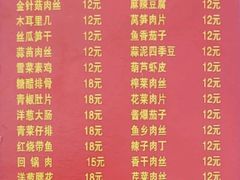 金针菇肉丝 12元 麻辣豆腐 12元
木耳里几 12元 莴笋肉片 12元
丝瓜笋干 12元 鱼香茄子 12元
蒜苗肉丝 12元 蒜泥四季豆 12元
雪菜素鸡 12元 葫芦虾皮 12元
糖醋排骨 18元 榨菜肉丝 12元
青椒肚片 18元 花菜肉片 12元
洋葱大肠 18元 酱爆茄子 12元
青菜仔排 18元 鱼乡肉丝 12元
红烧带鱼 18元 辣子肉丁 12元
回锅肉 15元 香干肉丝 12元
洋葱腰花 18元 芹菜肉丝 12元